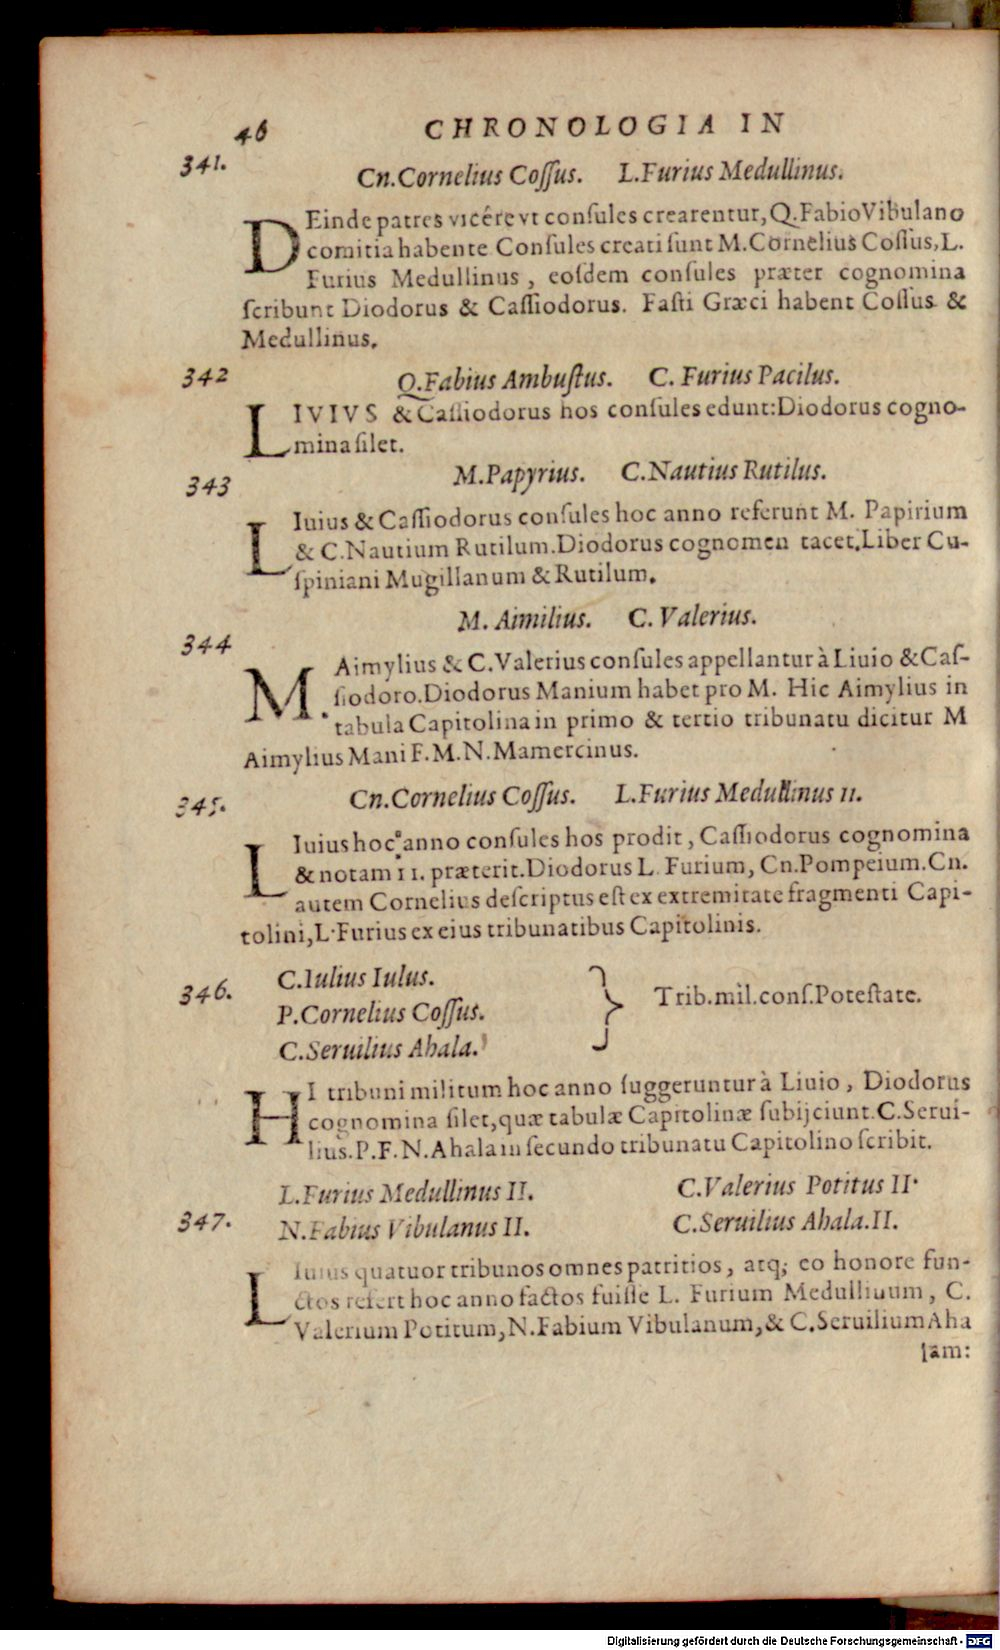 46 CHRONOLOGIA IN
341.
Cn.Cornelius Coſſus. L.Furius Medullinus.
DEinde patres vicére vt conſules crearentur, Q.Fabio Vibulano
comitia habente Conſules creati ſunt M.Cornelius Coſſus, L.
Furius Medullinus , eoſdem conſules præter cognomina
ſcribunt Diodorus & Caſſiodorus. Faſti Græci habent Coſſus &
Medullinus.
342
Q.Fabius Ambuſtus. C. Furius Pacilus.
LIVIVS & Caſſiodorus hos conſules edunt: Diodorus cogno-
mina ſilet.
343
M.Papyrius. C.Nautius Rutilus.
LIuius & Caſſiodorus conſules hoc anno referunt M. Papirium
& C.Nautium Rutilum. Diodorus cognomen tacet. Liber Cu-
ſpiniani Mugillanum & Rutilum.
344
M. Aimilius. C. Valerius.
M. Aimylius & C.Valerius conſules appellantur à Liuio & Caſ-
ſiodoro. Diodorus Manium habet pro M. Hic Aimylius in
tabula Capitolina in primo & tertio tribunatu dicitur M
Aimylius Mani F.M.N.Mamercinus.
345.
Cn.Cornelius Coſſus. L.Furius Medullinus 11.
LIuius hoc anno conſules hos prodit, Caſſiodorus cognomina
& notam 11. præterit. Diodorus L. Furium, Cn.Pompeium. Cn.
autem Cornelius deſcriptus eſt ex extremitate fragmenti Capi-
tolini, L·Furius ex eius tribunatibus Capitolinis.
346.
C.Iulius Iulus.
P.Cornelius Coſſus.
C.Seruilius Ahala.
} Trib.mil.conſ.Poteſtate.
HI tribuni militum hoc anno ſuggeruntur à Liuio , Diodorus
cognomina ſilet, quæ tabulæ Capitolinæ ſubijciunt. C.Serui-
lius.P.F.N.Ahala in ſecundo tribunatu Capitolino ſcribit.
L.Furius Medullinus II. C.Valerius Potitus II·
347.
N.Fabius Vibulanus II. C.Seruilius Ahala.II.
LIuius quatuor tribunos omnes patritios, atq; eo honore fun-
ctos refert hoc anno factos fuiſſe L. Furium Medullinum, C.
Valerium Potitum, N.Fabium Vibulanum, & C.Seruilium Aha
lam:
Digitalisierung gefördert durch die Deutsche Forschungsgemeinschaft - DFG